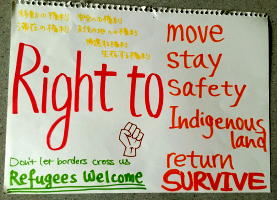 移動の権利
滞在の権利
生存する権利
Right to
move
stay
safety
Indigenous
land
return
SURVIVE
Don't let borders cross us
Refugees Welcome